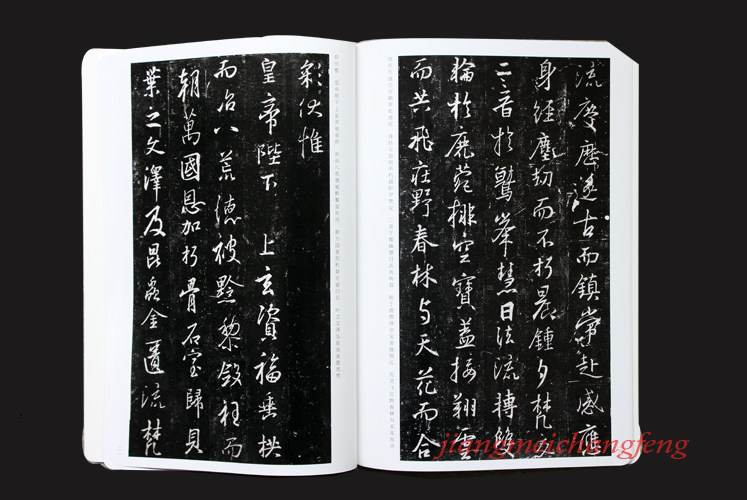 流慶歷遂古而鎮常赴感應
身經塵劫而不朽晨鍾夕梵交
二音於鷲峯慧日法流轉雙
輪於鹿菀排空寶蓋接翔雲
而共飛莊野春林与天花而合
彩伏惟
皇帝陛下 上玄資福垂拱
而治八荒德被黔黎斂衽而
朝萬國恩加朽骨石室歸貝
葉之文澤及昆蟲金匱流梵
jiangmeichangfeng